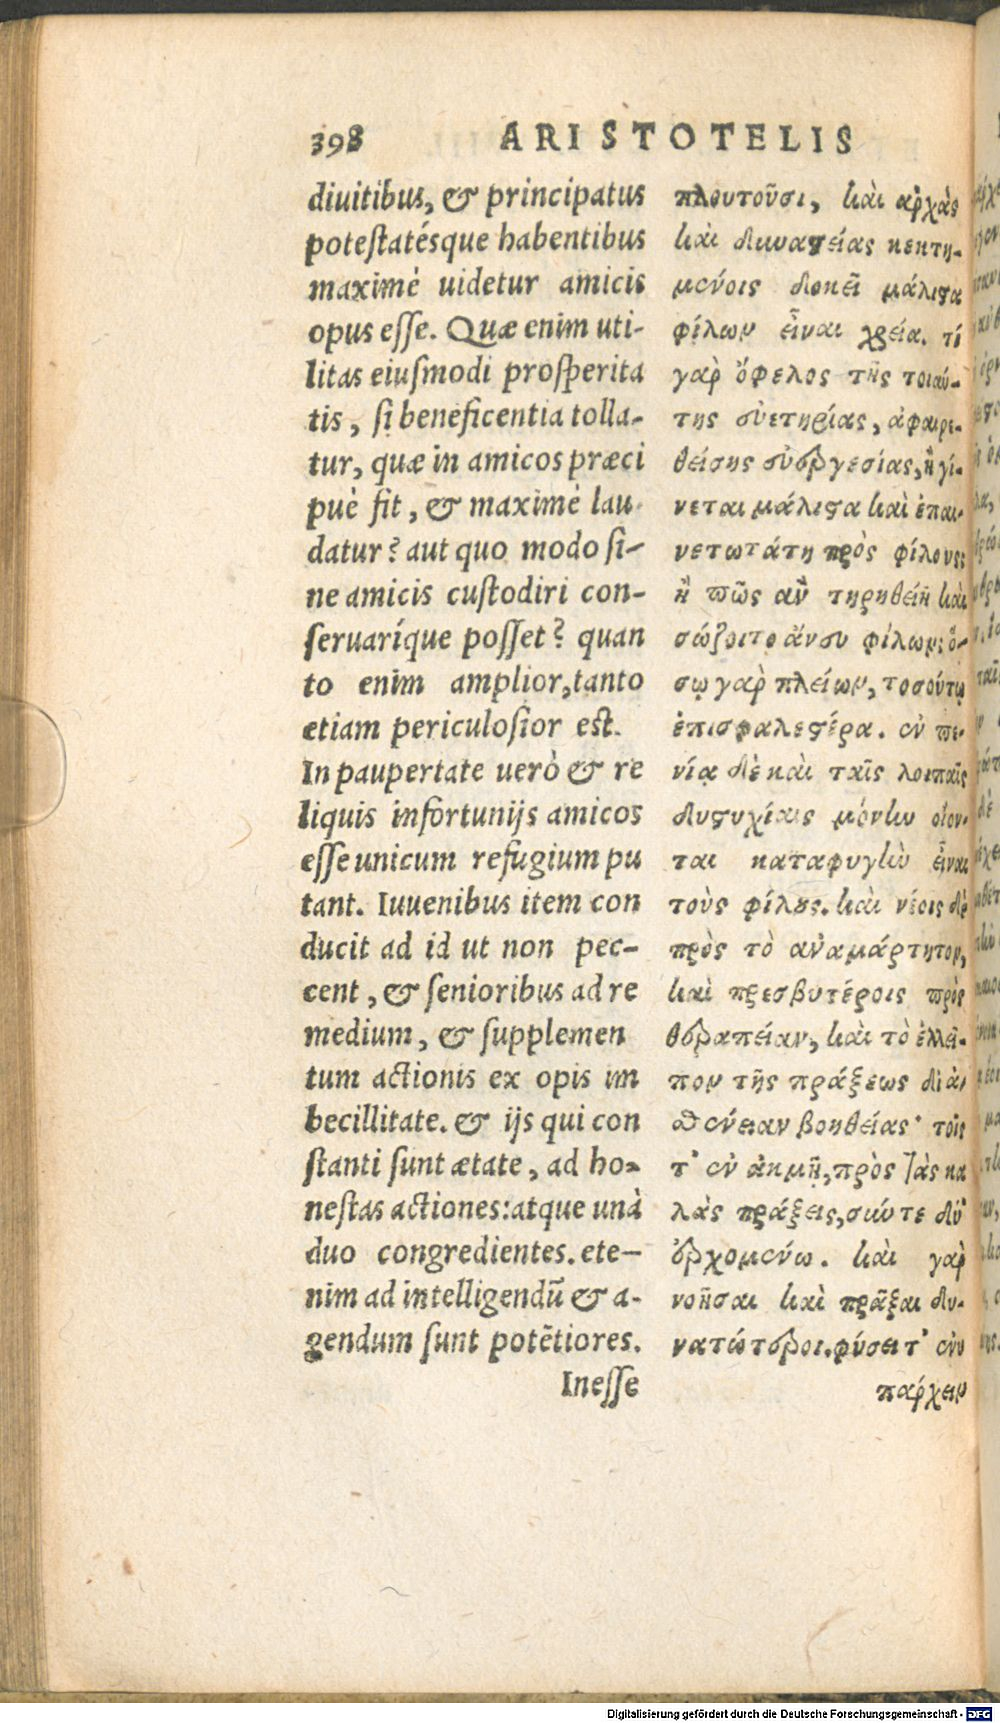 398 ARISTOTELIS
diuitibus, & principatus
potestatésque habentibus
maximè uidetur amicis
opus esse. Quæ enim uti-
litas eiusmodi prosperita
tis, si beneficentia tolla-
tur, quæ in amicos præci
puè fit, & maximè lau
datur? aut quo modo si-
ne amicis custodiri con-
seruaríque posset? quan
to enim amplior, tanto
etiam periculosior est.
In paupertate uerò & re
liquis infortunijs amicos
esse unicum refugium pu
tant. Iuuenibus item con
ducit ad id ut non pec-
cent, & senioribus ad re
medium, & supplemen
tum actionis ex opis im
becillitate. & ijs qui con
stanti sunt ætate, ad ho-
nestas actiones: atque unà
duo congredientes. ete-
nim ad intelligendũ & a-
gendum sunt potẽtiores.
Inesse
πλουτοῦσι, καὶ ἀρχὰς
καὶ δυναστείας κεκτη-
μένοις δοκεῖ μάλιστα
φίλων εἶναι χρεία. τί
γὰρ ὄφελος τῆς τοιαύ-
της εὐετηρίας, ἀφαιρε-
θείσης εὐεργεσίας, ἣ γί-
νεται μάλιστα καὶ ἐπαι-
νετωτάτη πρὸς φίλους;
ἢ πῶς ἂν τηρηθείη καὶ
σώζοιτο ἄνευ φίλων; ὅ-
σῳ γὰρ πλείων, τοσούτῳ
ἐπισφαλεστέρα. ἐν πε-
νίᾳ δὲ καὶ ταῖς λοιπαῖς
δυστυχίαις μόνην οἴον-
ται καταφυγὴν εἶναι
τοὺς φίλους. καὶ νέοις δὲ
πρὸς τὸ ἀναμάρτητον,
καὶ πρεσβυτέροις πρὸς
θεραπείαν, καὶ τὸ ἐλλεῖ-
πον τῆς πράξεως δι' ἀ-
σθένειαν βοηθείας· τοῖς
τ' ἐν ἀκμῇ, πρὸς τὰς κα
λὰς πράξεις, σύν τε δύ'
ἐρχομένω. καὶ γὰρ
νοῆσαι καὶ πρᾶξαι δυ-
νατώτεροι. φύσει τ' ἐνυ
πάρχειν
Digitalisierung gefördert durch die Deutsche Forschungsgemeinschaft - DFG